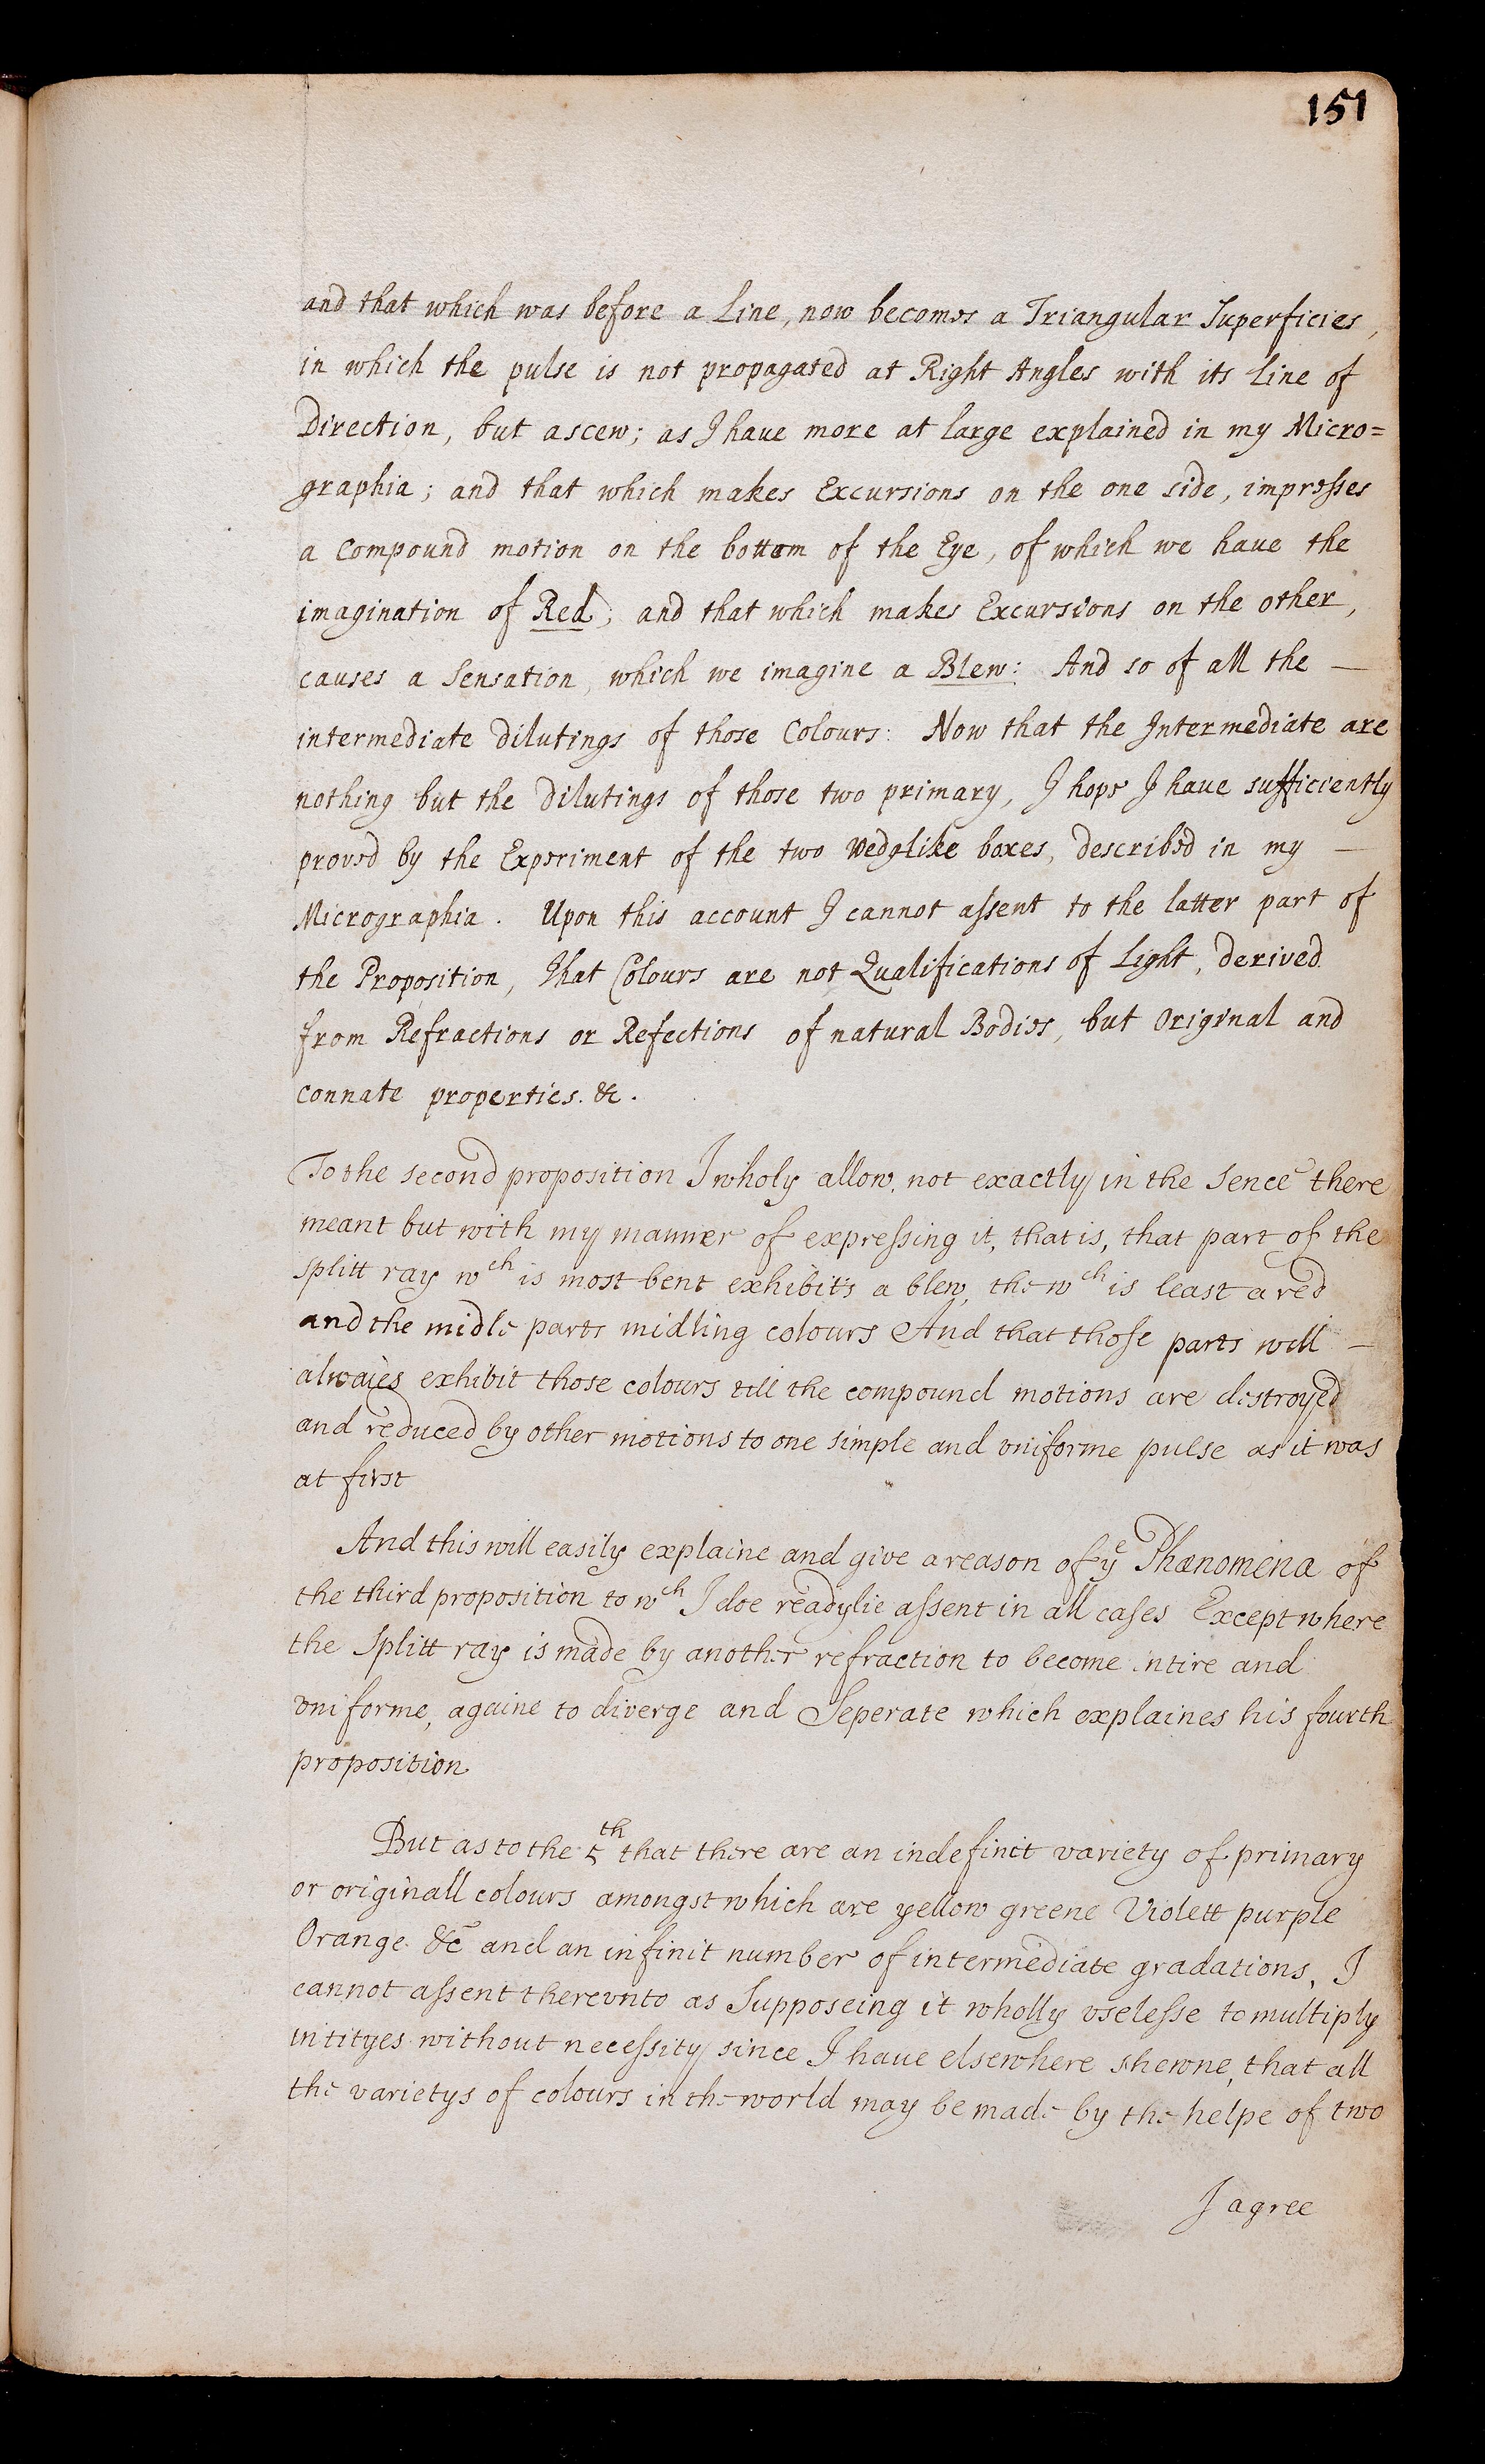 151
and that which was before a Line, now becomes a Triangular Superficies,
in which the pulse is not propagated at Right Angles with its Line of
Direction, but ascew; as I haue more at large explained in my Micro=
graphia; and that which makes Excursions on the one side, impresses
a Compound motion on the bottom of the Eye, of which we haue the
imagination of Red; and that which makes Excursions on the other,
causes a Sensation, which we imagine a Blew: And so of all the —
intermediate dilutings of those Colours: Now that the Intermediate are
nothing but the Dilutings of those two primary, I hope I haue sufficiently
proved by the Experiment of the two Wedglike boxes, described in my —
Micrographia. Upon this account I cannot assent to the latter part of
the Proposition, That Colours are not Qualifications of Light, derived
from Refractions or Refections of natural Bodies, but Original and
connate properties. &c.
To the second proposition I wholy allow, not exactly in the Sence there
meant but with my manner of expressing it, that is, that part of the
splitt ray wch is most bent exhibits a blew, the wch is least a red
and the midle parts midling colours And that those parts will —
alwaies exhibit those colours till the compound motions are destroyed
and reduced by other motions to one simple and vniforme pulse as it was
at first
And this will easily explaine and give a reason of ye Phænomena of
the third proposition to wch I doe readylie assent in all cases Except where
the Splitt ray is made by another refraction to become intire and
vniforme, againe to diverge and Seperate which explaines his fourth
proposition
But as to the 5th that there are an indefinit variety of primary
or originall colours amongst which are yellow greene Violett purple
Orange &c and an infinit number of intermediate gradations, I
cannot assent therevnto as Supposeing it wholly vselesse to multiply
intityes without necessity since I haue elsewhere shewne, that all
the varietys of colours in the world may be made by the helpe of two
I agree